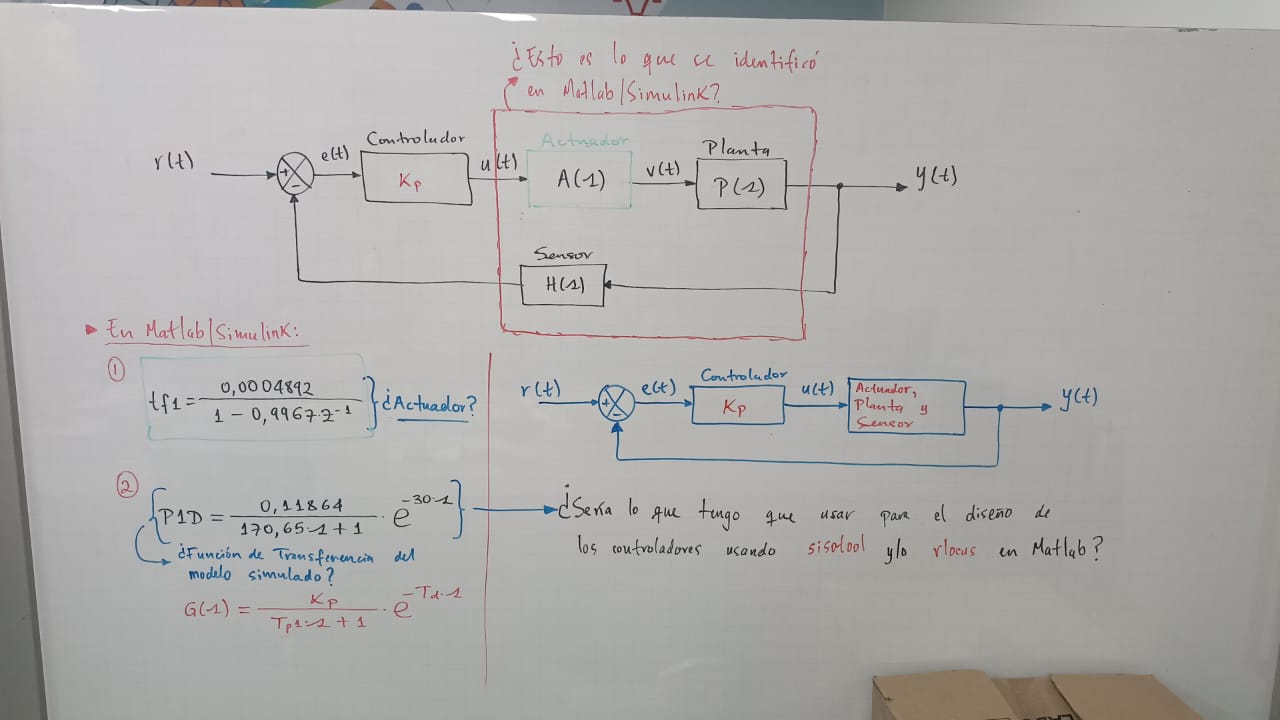 ¿Esto es lo que se identificó
en Matlab/Simulink?
Controlador
Actuador
Planta
r(t)
+
-
e(t)
Kp
u(t)
A(s)
v(t)
P(s)
y(t)
Sensor
H(s)
▸ En Matlab/Simulink:
①
tf1 = 0,0004892 / 1 - 0,9967·z^-1 } ¿Actuador?
②
P1D = 0,11864 / 170,65·s + 1 · e^-30·s
¿Función de Transferencia del
modelo simulado?
G(s) = Kp / Tp1·s + 1 · e^-Td·s
r(t)
+
-
e(t)
Controlador
Kp
u(t)
Actuador,
Planta y
Sensor
y(t)
¿Sería lo que tengo que usar para el diseño de
los controladores usando sisotool y/o rlocus en Matlab?